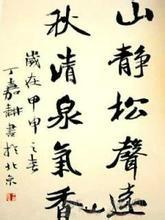 山靜松聲遠
秋清泉氣香
歲在甲申之春
丁嘉耕書於北京